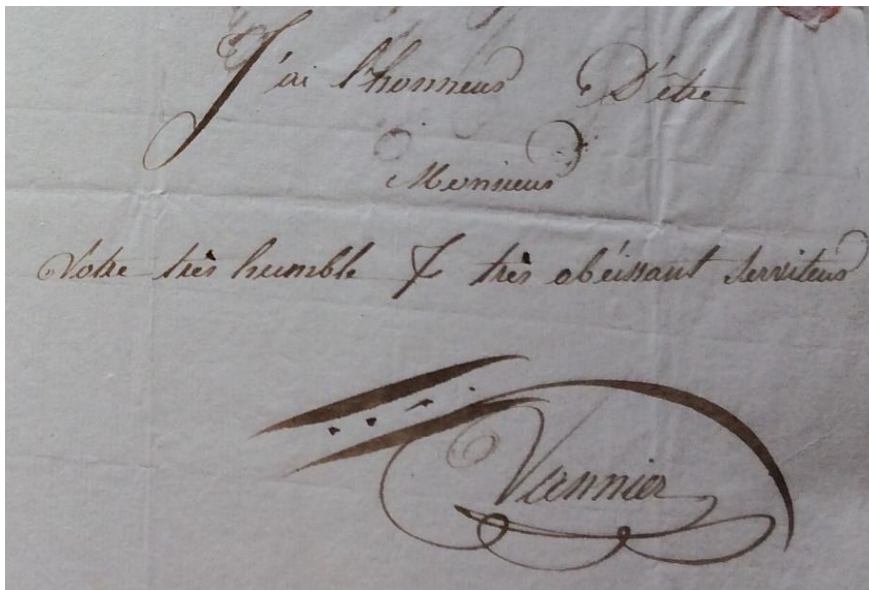 J'ai l'honneur D'être
Monsieur
Votre très humble & très obéissant serviteur
Vannier